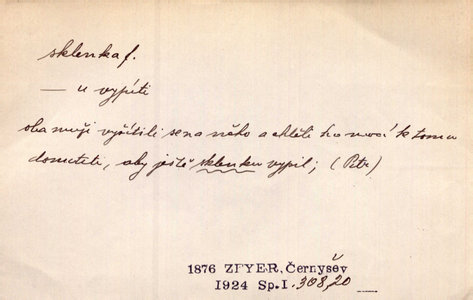 sklenka f.
— u vypíti
oba muži vyřítili se na něho a chtěli ho mocí k tomu
donutiti, aby ještě sklenku vypil; (Petr)
1876 ZEYER, Černyšev
1924 Sp. I. 308,20